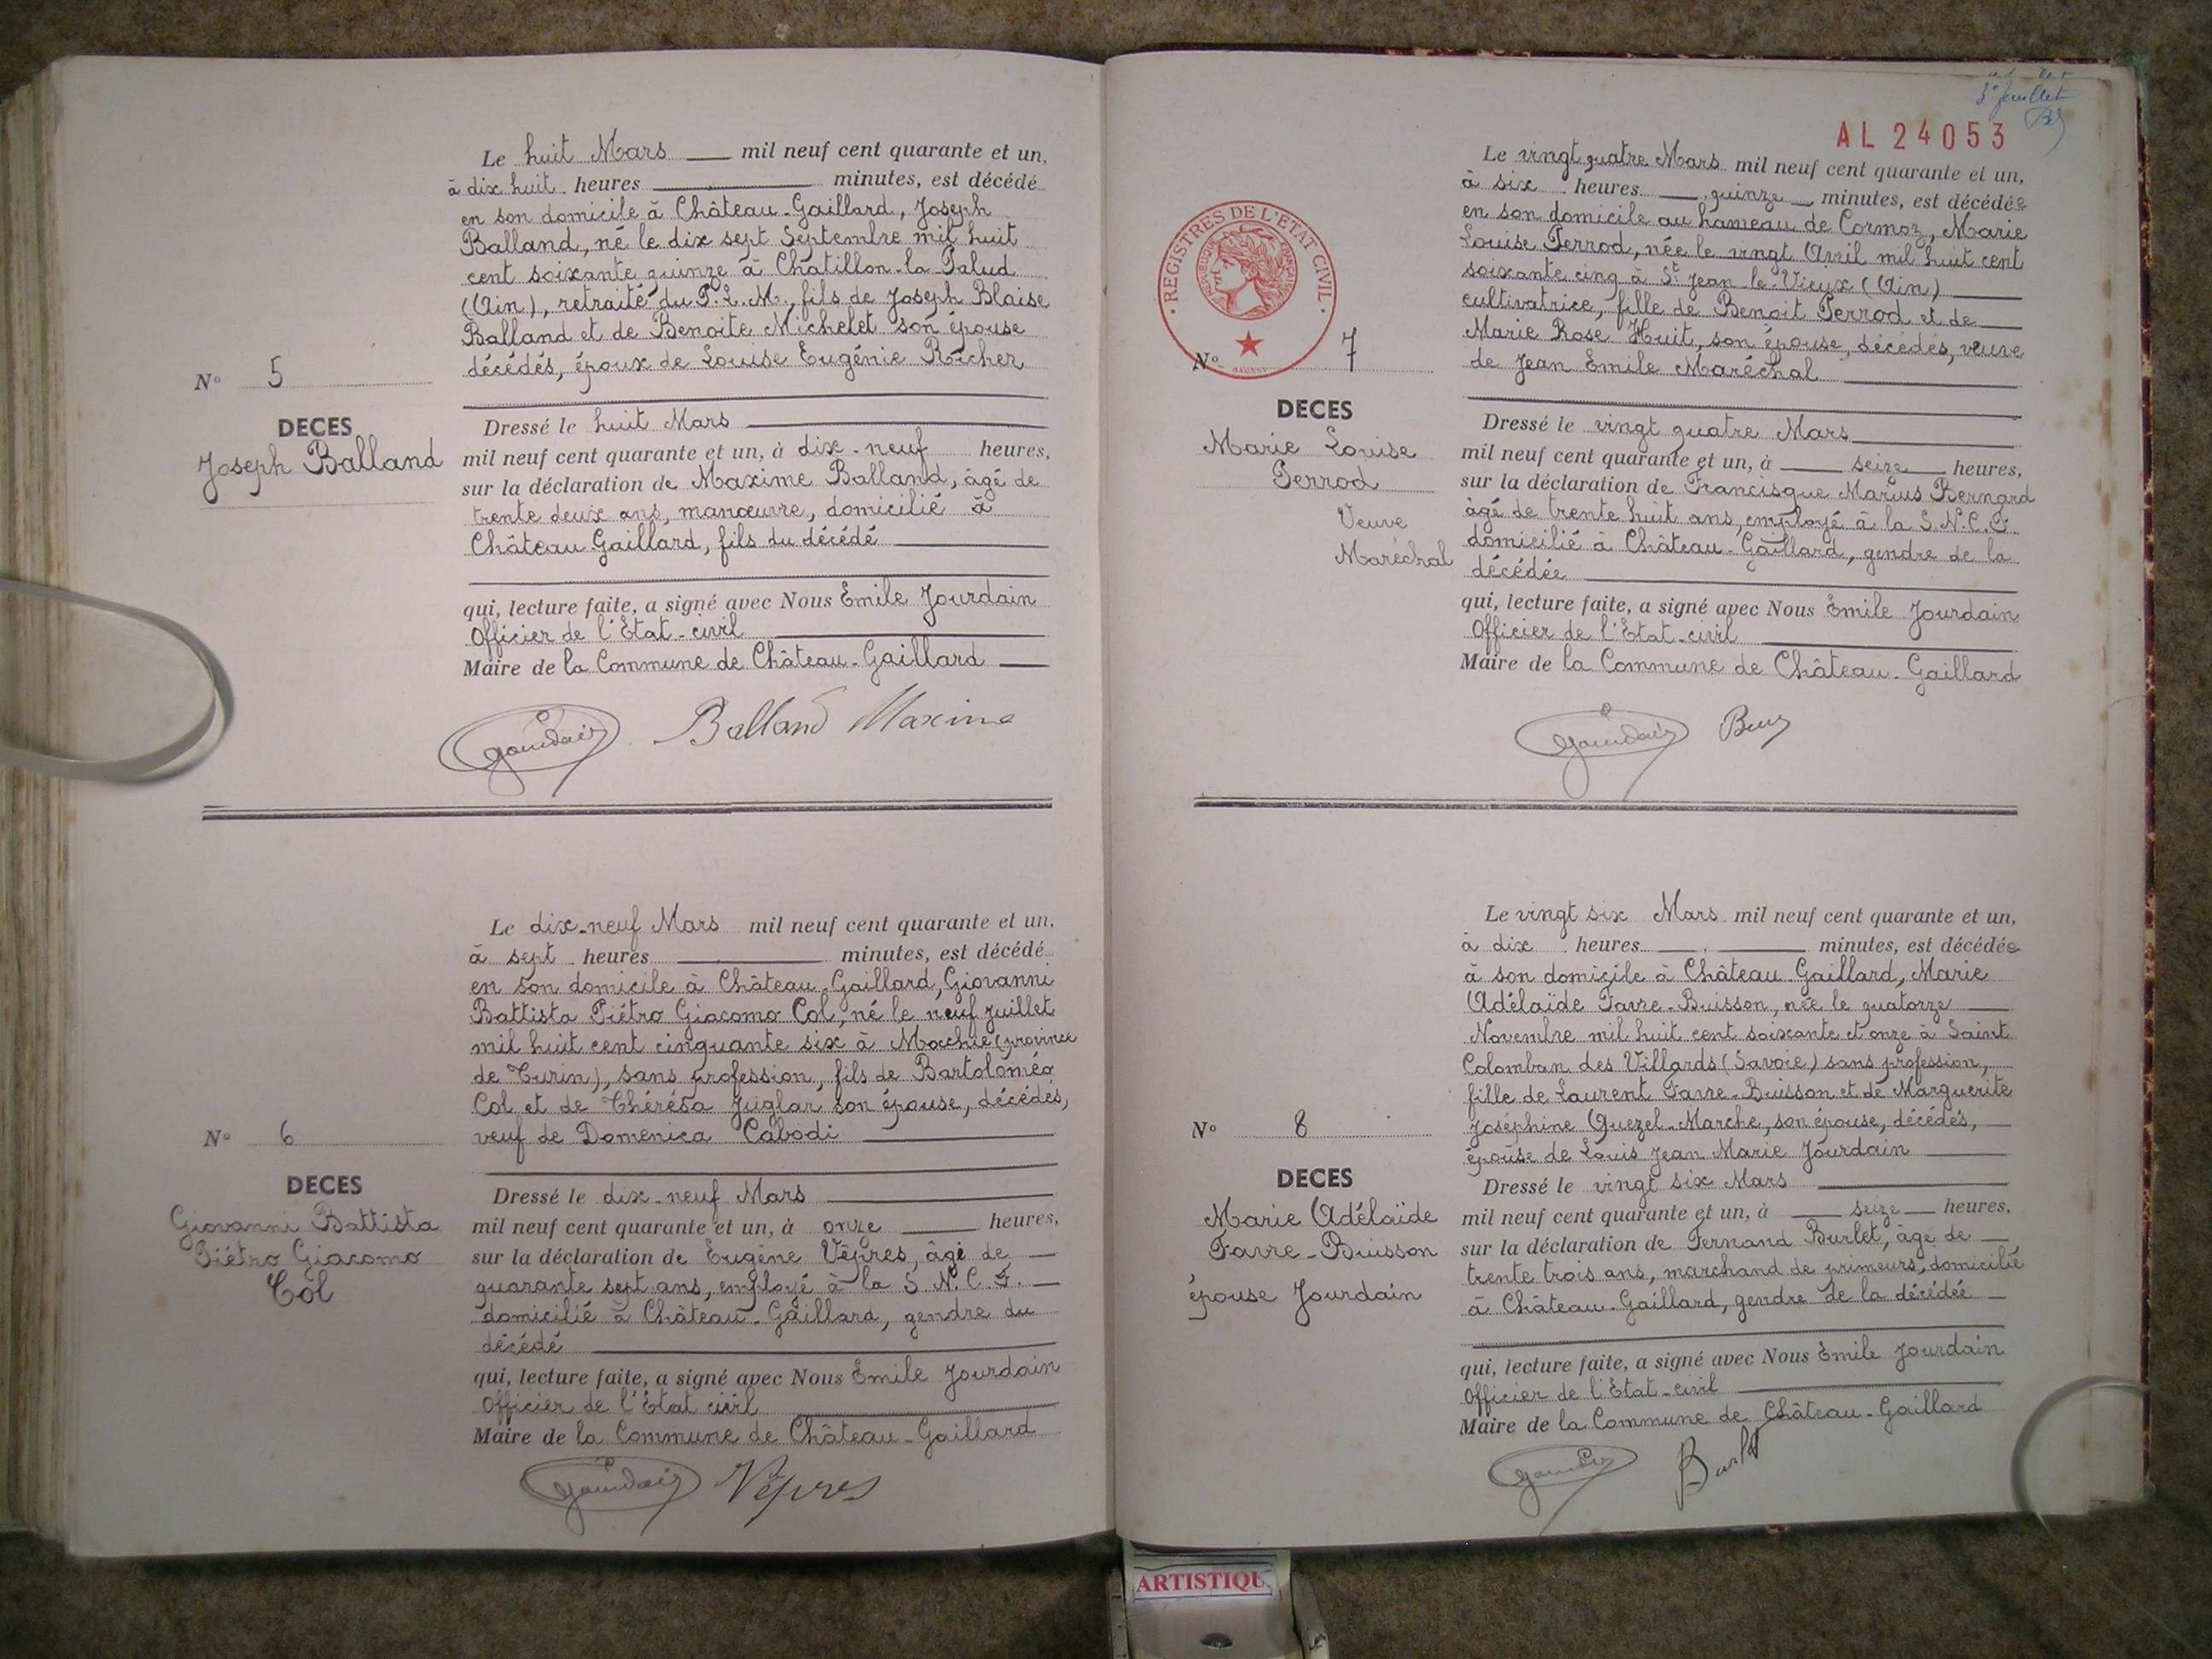 Le huit Mars mil neuf cent quarante et un,
à dix huit heures minutes, est décédé
en son domicile à Château-Gaillard, Joseph
Balland, né le dix sept Septembre mil huit
cent soixante quinze à Chatillon-la-Palud
(Ain), retraité du P.L.M., fils de Joseph Blaise
Balland et de Benoite Michelet son épouse
décédés, époux de Louise Eugénie Richer
N° 5
DECES
Joseph Balland
Dressé le huit Mars
mil neuf cent quarante et un, à dix-neuf heures,
sur la déclaration de Maxime Balland, âgé de
trente deux ans, manœuvre, domicilié à
Château-Gaillard, fils du décédé
qui, lecture faite, a signé avec Nous Emile Jourdain
Officier de l'Etat-civil
Maire de la Commune de Château-Gaillard
Balland Maxime
Le dix-neuf Mars mil neuf cent quarante et un,
à sept heures minutes, est décédé
en son domicile à Château-Gaillard, Giovanni
Battista Piétro Giacomo Col, né le neuf juillet
mil huit cent cinquante six à Mocchie (province
de Turin), sans profession, fils de Bartoloméo
Col et de Thérésa Juglar son épouse, décédés,
veuf de Domenica Cabodi
N° 6
DECES
Giovanni Battista
Piétro Giacomo
Col
Dressé le dix-neuf Mars
mil neuf cent quarante et un, à onze heures,
sur la déclaration de Eugène Vêpres, âgé de
quarante sept ans, employé à la S.N.C.F.
domicilié à Château-Gaillard, gendre du
décédé
qui, lecture faite, a signé avec Nous Emile Jourdain
Officier de l'Etat civil
Maire de la Commune de Château-Gaillard
Vêpres
3e feuillet
AL 24053
Le vingt quatre Mars mil neuf cent quarante et un,
à six heures quinze minutes, est décédée
en son domicile au hameau de Cormoz, Marie
Louise Perrod, née le vingt Avril mil huit cent
soixante cinq à St Jean-le-Vieux (Ain)
cultivatrice, fille de Benoit Perrod et de
Marie Rose Huit, son épouse, décédés, veuve
de Jean Emile Maréchal
REGISTRES DE L'ETAT CIVIL
REPUBLIQUE FRANÇAISE
N° 7
DECES
Marie Louise
Perrod
Veuve
Maréchal
Dressé le vingt quatre Mars
mil neuf cent quarante et un, à seize heures,
sur la déclaration de Francisque Marius Bernard
âgé de trente huit ans, employé à la S.N.C.F.
domicilié à Château-Gaillard, gendre de la
décédée
qui, lecture faite, a signé avec Nous Emile Jourdain
Officier de l'Etat-civil
Maire de la Commune de Château-Gaillard
Le vingt six Mars mil neuf cent quarante et un,
à dix heures minutes, est décédée
à son domicile à Château-Gaillard, Marie
Adélaïde Favre-Buisson, née le quatorze
Novembre mil huit cent soixante et onze à Saint
Colomban des Villards (Savoie) sans profession,
fille de Laurent Favre-Buisson et de Marguerite
Joséphine Quezel-Marche, son épouse, décédés,
épouse de Louis Jean Marie Jourdain
N° 8
DECES
Marie Adélaïde
Favre-Buisson
épouse Jourdain
Dressé le vingt six Mars
mil neuf cent quarante et un, à seize heures,
sur la déclaration de Fernand Burlet, âgé de
trente trois ans, marchand de primeurs, domicilié
à Château-Gaillard, gendre de la décédée
qui, lecture faite, a signé avec Nous Emile Jourdain
Officier de l'Etat-civil
Maire de la Commune de Château-Gaillard
Burlet
ARTISTIQU